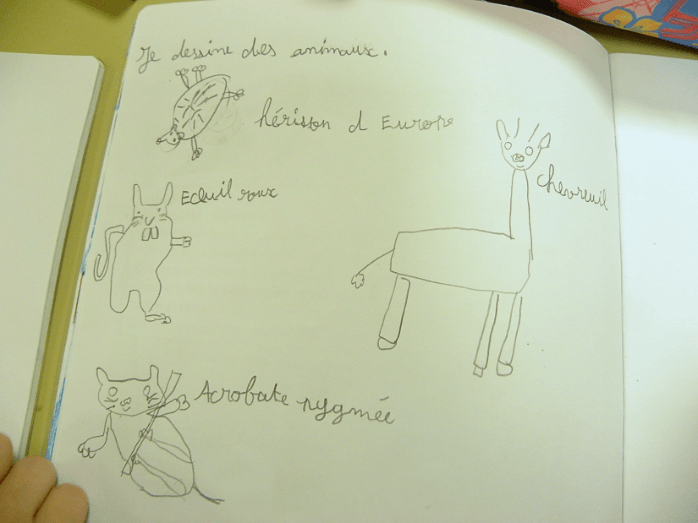 Je dessine des animaux.
hérisson d Europe
chevreuil
Ecuil roux
Acrobate pygmée